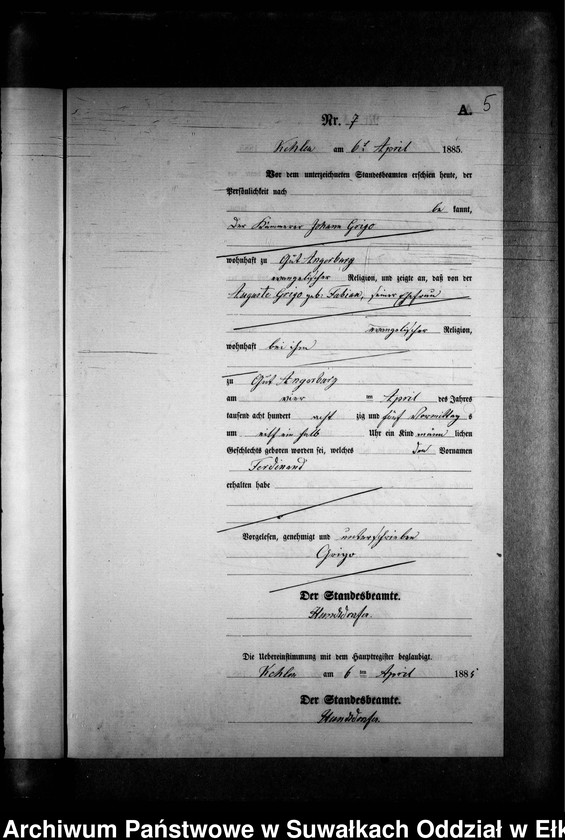 A. 5
Nr. 7
Kehlen am 6t April 1885.
Vor dem unterzeichneten Standesbeamten erschien heute, der
Persönlichkeit nach
be kannt,
der Kämmerer Johann Grigo
wohnhaft zu Gut Angerburg
evangelischer Religion, und zeigte an, daß von der
Auguste Grigo geb. Fabian, seiner Ehefrau
evangelischer Religion,
wohnhaft bei ihm
zu Gut Angerburg
am vier ten April des Jahres
tausend acht hundert acht zig und fünf Vormittag s
um eilf ein halb Uhr ein Kind männ lichen
Geschlechts geboren worden sei, welches den Vornamen
Ferdinand
erhalten habe
Vorgelesen, genehmigt und unterschrieben
Grigo
Der Standesbeamte.
Die Uebereinstimmung mit dem Hauptregister beglaubigt.
Kehlen am 6 ten April 1885
Der Standesbeamte.
Archiwum Państwowe w Suwałkach Oddział w Ełk